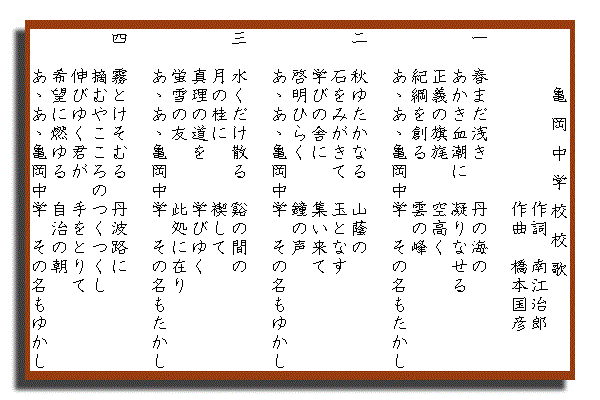 亀岡中学校校歌
作詞 南江治郎
作曲 橋本国彦
一
春まだ浅き 丹の海の
あかき血潮に 凝りなせる
正義の旗旌 空高く
紀綱を創る 雲の峰
あゝあゝ亀岡中学 その名もたかし
二
秋ゆたかなる 山蔭の
石をみがきて 玉となす
学びの舎に 集い来て
啓明ひらく 鐘の声
あゝあゝ亀岡中学 その名もゆかし
三
水くだけ散る 谿の間の
月の桂に 禊して
真理の道を 学びゆく
蛍雪の友 此処に在り
あゝあゝ亀岡中学 その名もたかし
四
霧とけそむる 丹波路に
摘むやこころの つくつくし
伸びゆく君が 手をとりて
希望に燃ゆる 自治の朝
あゝあゝ亀岡中学 その名もゆかし